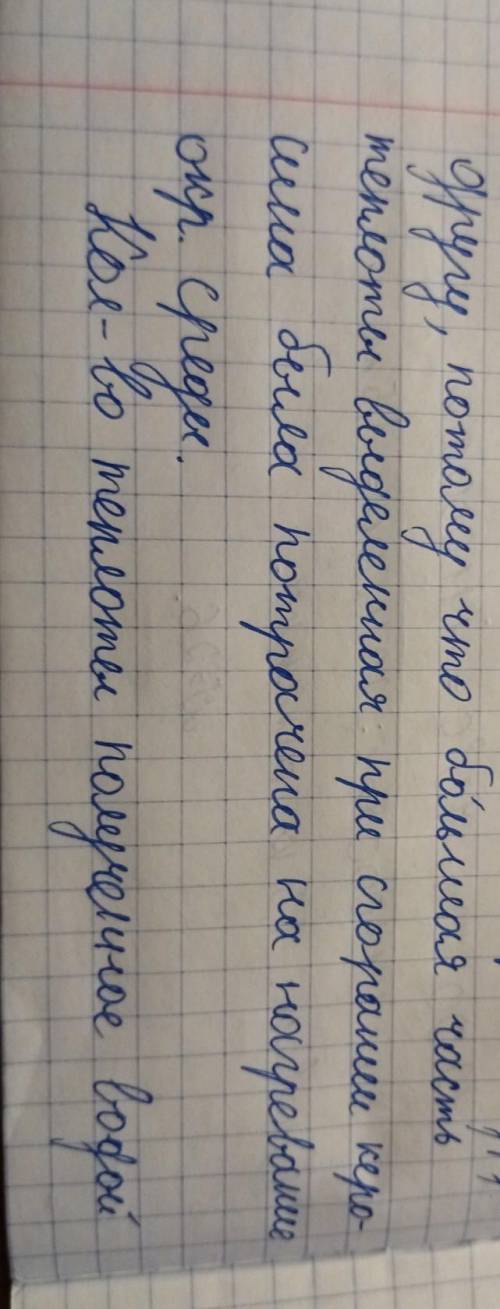 другу, потому что бо́льшая часть
теплоты выделенная при сгорании керо-
сина была потрачена на нагревание
окр. среды.
Кол-во теплоты полученное водой